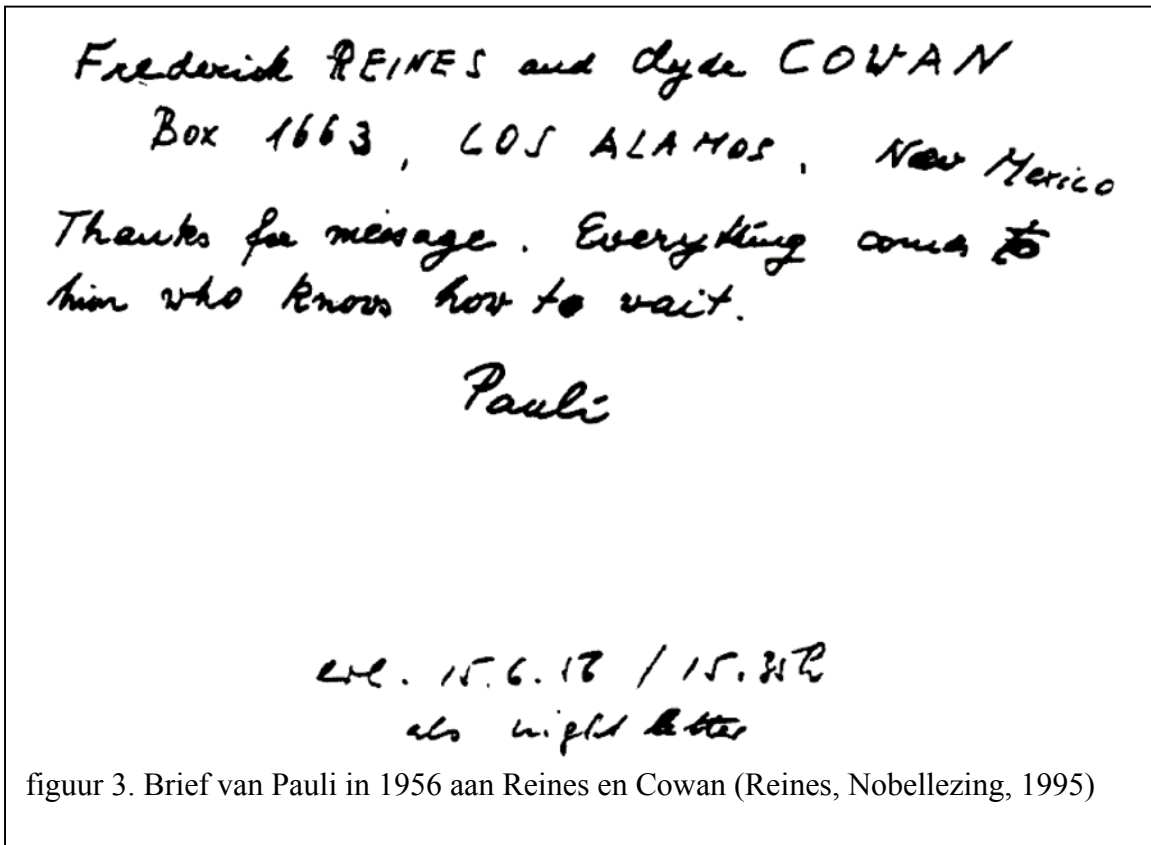 Frederick REINES and Clyde COWAN
Box 1663, LOS ALAMOS, New Mexico
Thanks for message. Everything comes to
him who knows how to wait.
Pauli
15.6.56 / 15.35h
als night letter
figuur 3. Brief van Pauli in 1956 aan Reines en Cowan (Reines, Nobellezing, 1995)